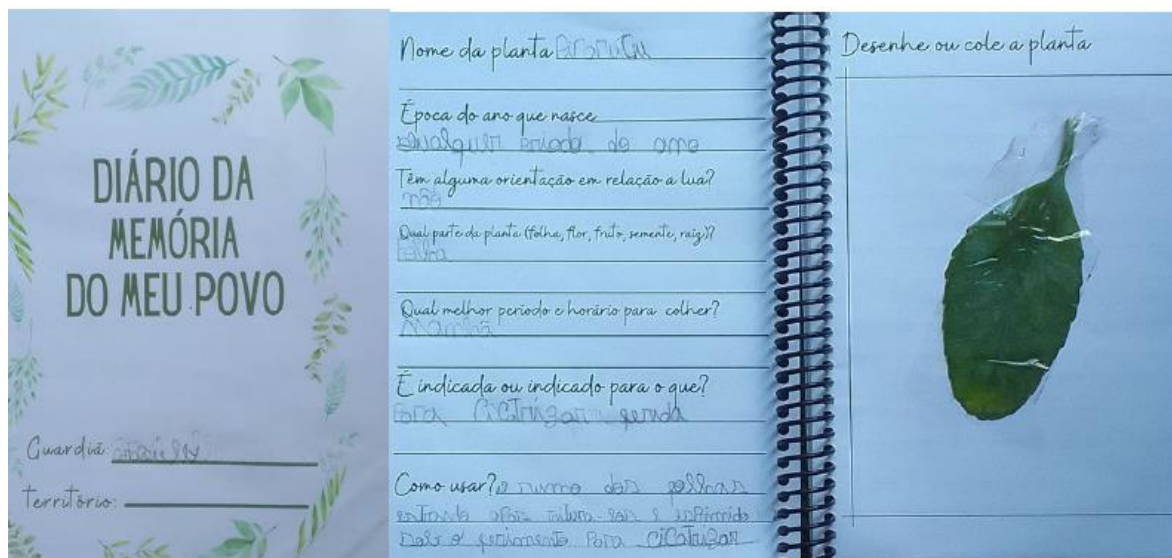 DIÁRIO DA
MEMÓRIA
DO MEU POVO
Guardiã:
Território:
Nome da planta Pirarucu
Época do ano que nasce
qualquer do ano
Têm alguma orientação em relação a lua?
não
Qual parte da planta (folha, flor, fruto, semente, raiz)?
Folha
Qual melhor período e horário para colher?
Manhã
É indicada ou indicado para o que?
Para Cicatrizar ferida
Como usar? o sumo das folhas
e
o ferimento Para Cicatrizar
Desenhe ou cole a planta